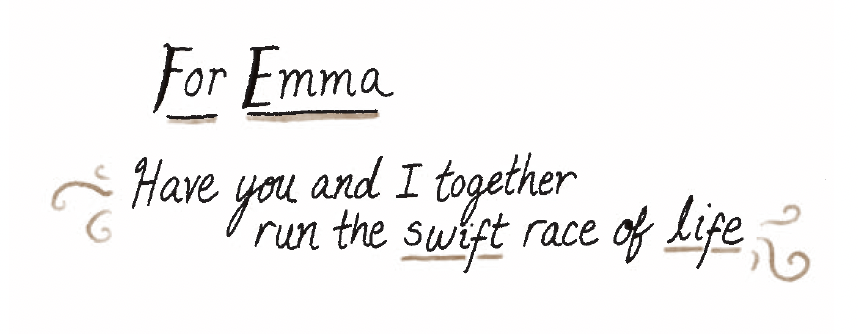 For Emma
Have you and I together
run the swift race of life